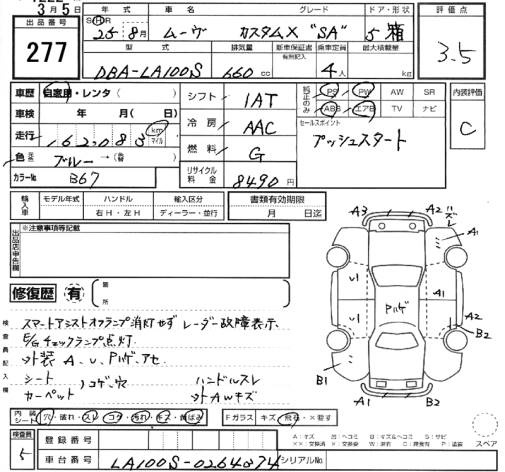 3月5日
出品番号
277
年式 車名 グレード ドア・形状
S・H 25年 8月 ムーヴ カスタムX "SA" 5 箱
型式 排気量 新車保証書 有無記入 乗車定員 最大積載量
DBA-LA100S 660cc 4人 kg
評価点
3.5
車歴 自家用・レンタ
車検 年 月 ( 日)
走行 162,083 km マイル
色 ブルー → (替)
カラーNo B67
シフト IAT
冷房 AAC
燃料 G
リサイクル料金 8490円
純正のみ PS PW AW SR
ABS エアB TV ナビ
セールスポイント
プッシュスタート
内装評価
C
輸入車 モデル年式 ハンドル 輸入区分
右H・左H ディーラー・並行
書類有効期限
月 日迄
出品店申告欄
※注意事項等記載
修復歴 有
箇所
検査員記入欄
スマートアシストオフランプ消灯せず レーダー故障表示
E/Gチェックランプ点灯
外装 A、U、Pハゲ、アセ
シート
カーペット
コゲ、穴
ハンドルスレ
外AWキズ
A3 A2 A1
U1 Pハゲ U1 A1
A2
B2
B1 A1 B2
内装シート 穴・破れ・スレ・コゲ・汚れ・キズ・黄ばみ
Fガラス キズ・飛石・×要す
A：キズ
スペア
検査員
5
登録番号
車台番号 LA100S-0264274 シリアルNo